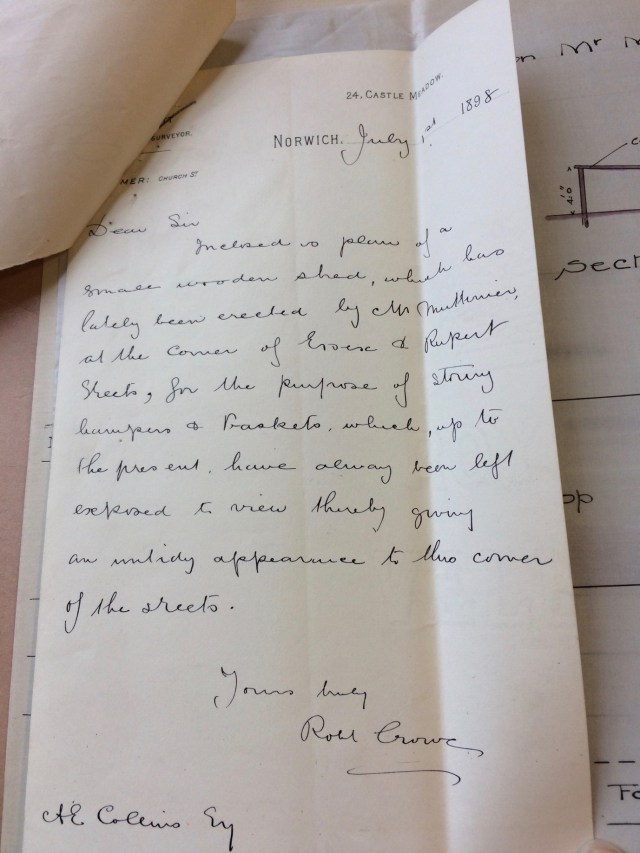 24, CASTLE MEADOW.
NORWICH, July 1st 1898
SURVEYOR.
MER: CHURCH ST
Dear Sir
Inclosed is plan of a
small wooden shed, which has
lately been erected by Mr
at the corner of Essex & Rupert
Streets, for the purpose of storing
hampers & baskets, which, up to
the present, have always been left
exposed to view thereby giving
an untidy appearance to this corner
of the streets.
Yours truly
Robt Crowe
A E Collins Esq
on Mr
Sect
op
Fo